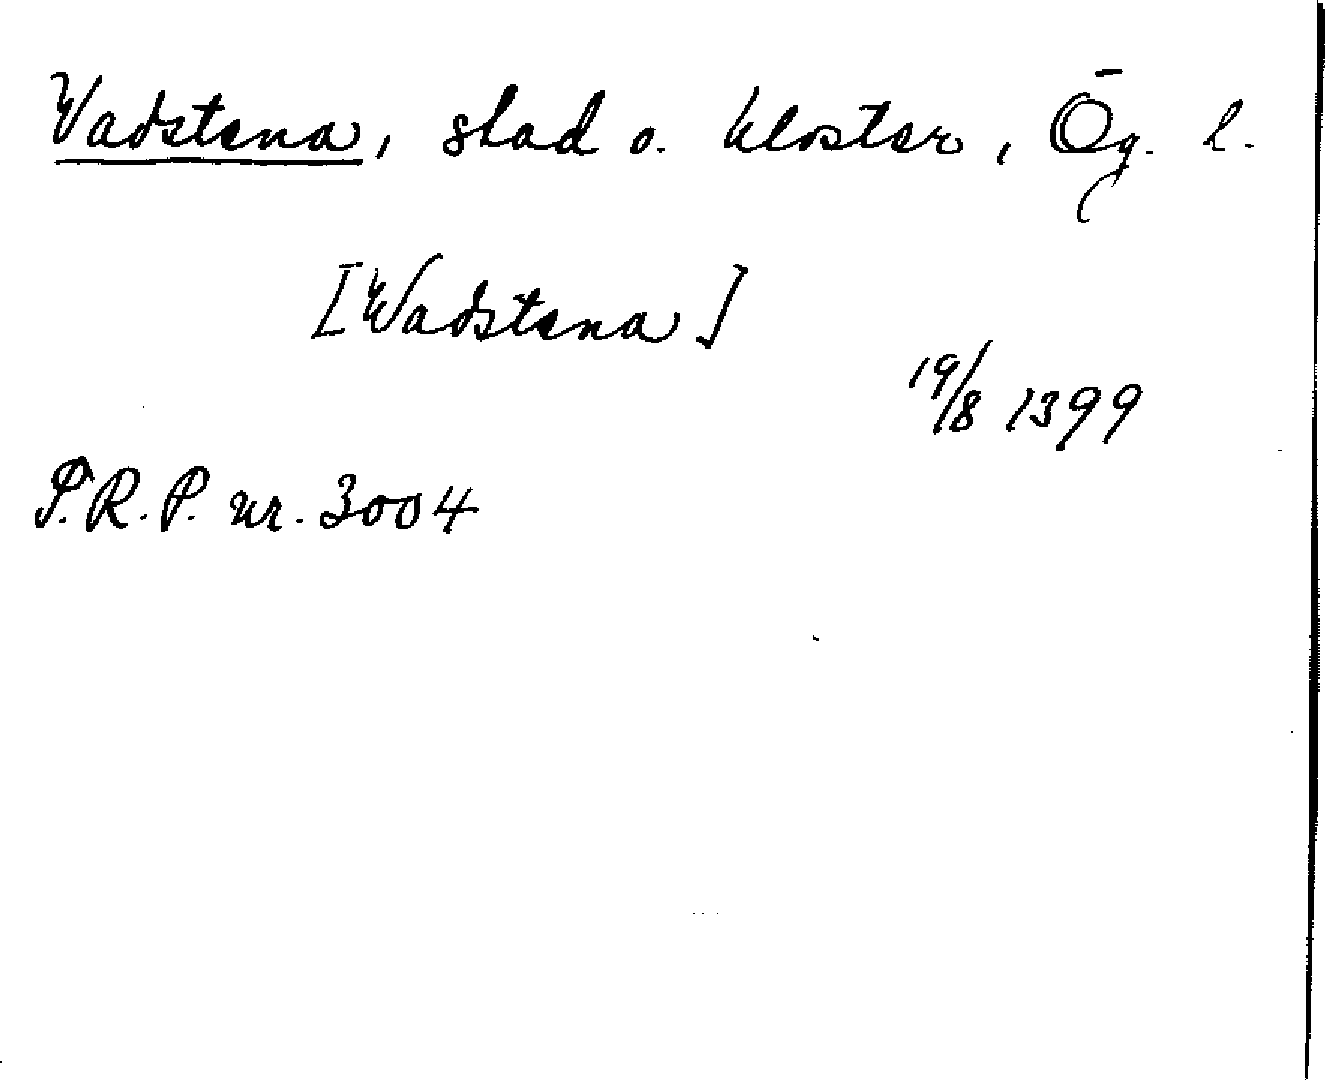 Vadstena, stad o. kloster, Ög. l.
[Wadstena]
19/8 1399
S.R.P. nr. 3004